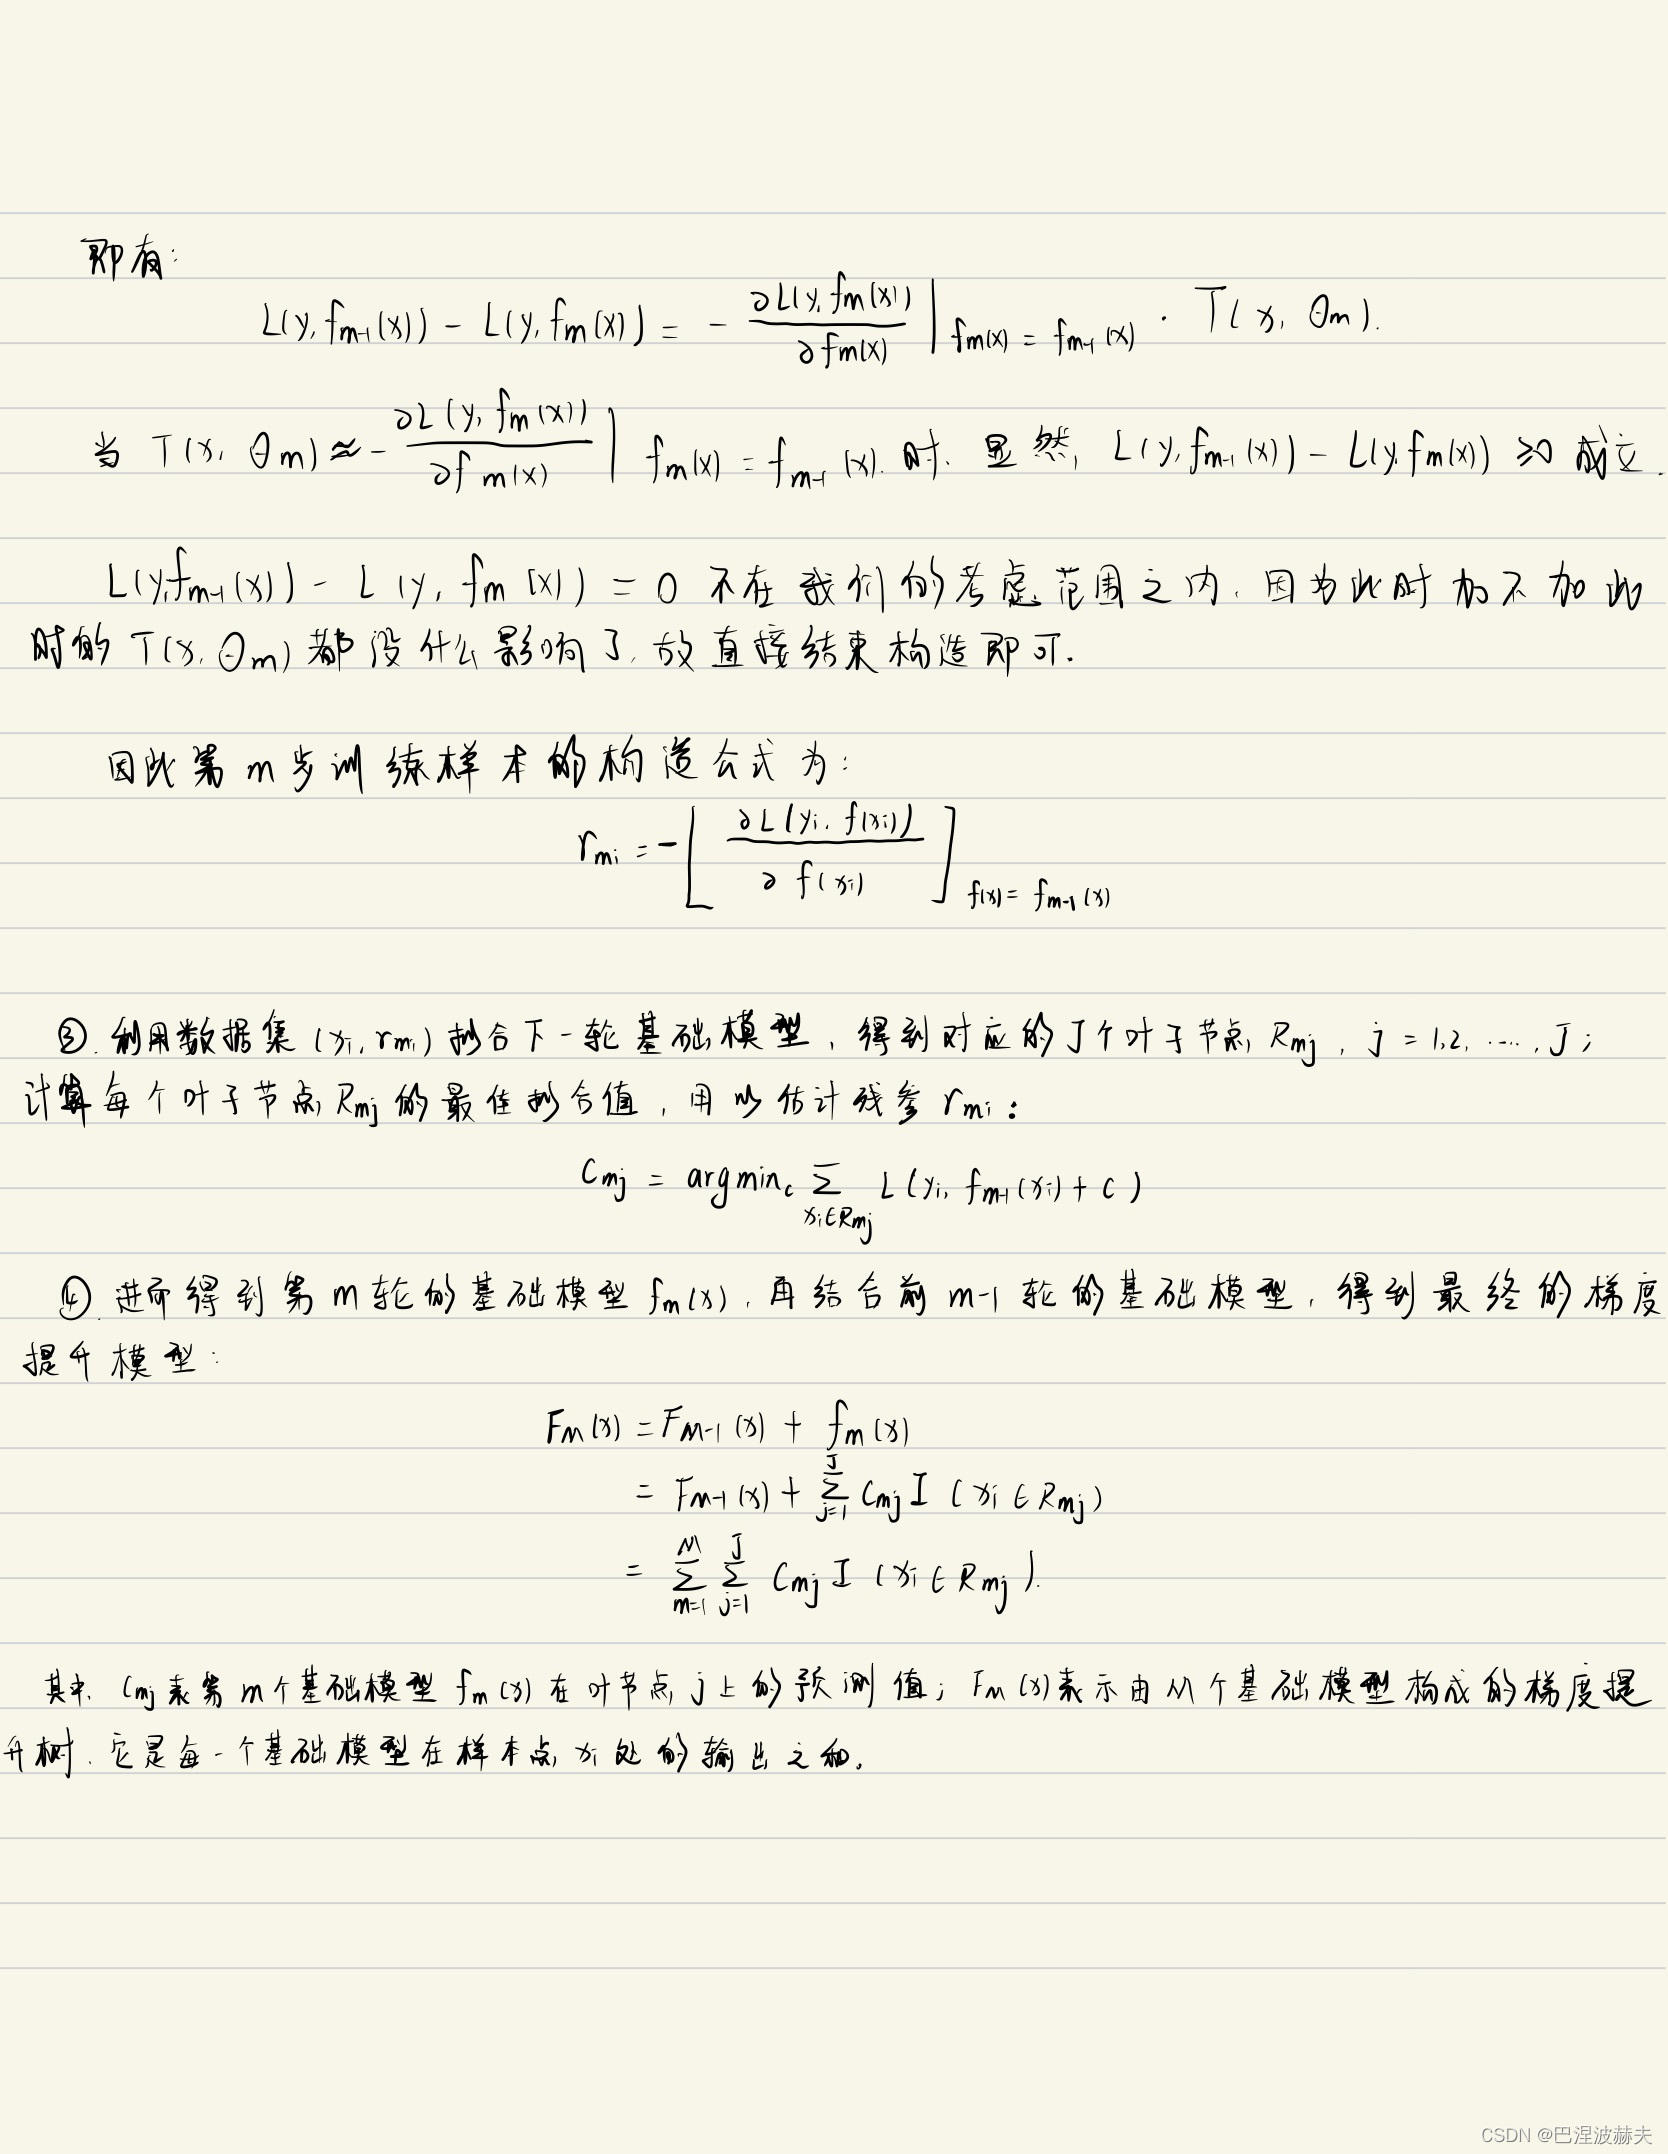 即有:
L(y, f_{m-1}(x)) - L(y, f_m(x)) = - ∂L(y, f_m(x)) / ∂f_m(x) | f_m(x) = f_{m-1}(x) · T(x, θ_m).
当 T(x, θ_m) ≈ - ∂L(y, f_m(x)) / ∂f_m(x) | f_m(x) = f_{m-1}(x). 时. 显然, L(y, f_{m-1}(x)) - L(y, f_m(x)) ≥0 成立.
L(y, f_{m-1}(x)) - L(y, f_m(x)) = 0 不在我们的考虑范围之内, 因为此时加不加此
时的 T(x, θ_m) 都没什么影响了, 故直接结束构造即可.
因此第 m 步训练样本的构造公式为:
r_{mi} = - [ ∂L(y_i, f(x_i)) / ∂f(x_i) ] f(x) = f_{m-1}(x)
③. 利用数据集 (x_i, r_{mi}) 拟合下一轮基础模型, 得到对应的 J 个叶子节点 R_{mj}, j = 1,2, ……, J;
计算每个叶子节点 R_{mj} 的最佳拟合值, 用以估计残参 r_{mi}:
C_{mj} = argmin_c Σ_{x_i∈R_{mj}} L(y_i, f_{m-1}(x_i) + c)
④. 进而得到第 m 轮的基础模型 f_m(x), 再结合前 m-1 轮的基础模型, 得到最终的梯度
提升模型:
F_M(x) = F_{M-1}(x) + f_m(x)
= F_{M-1}(x) + Σ_{j=1}^{J} C_{mj} I (x_i ∈ R_{mj})
= Σ_{m=1}^{M} Σ_{j=1}^{J} C_{mj} I (x_i ∈ R_{mj}).
其中, C_{mj} 表第 m 个基础模型 f_m(x) 在叶节点 j 上的预测值; F_M(x) 表示由 M 个基础模型构成的梯度提
升树. 它是每一个基础模型在样本点 x_i 处的输出之和.
CSDN @巴涅波赫夫